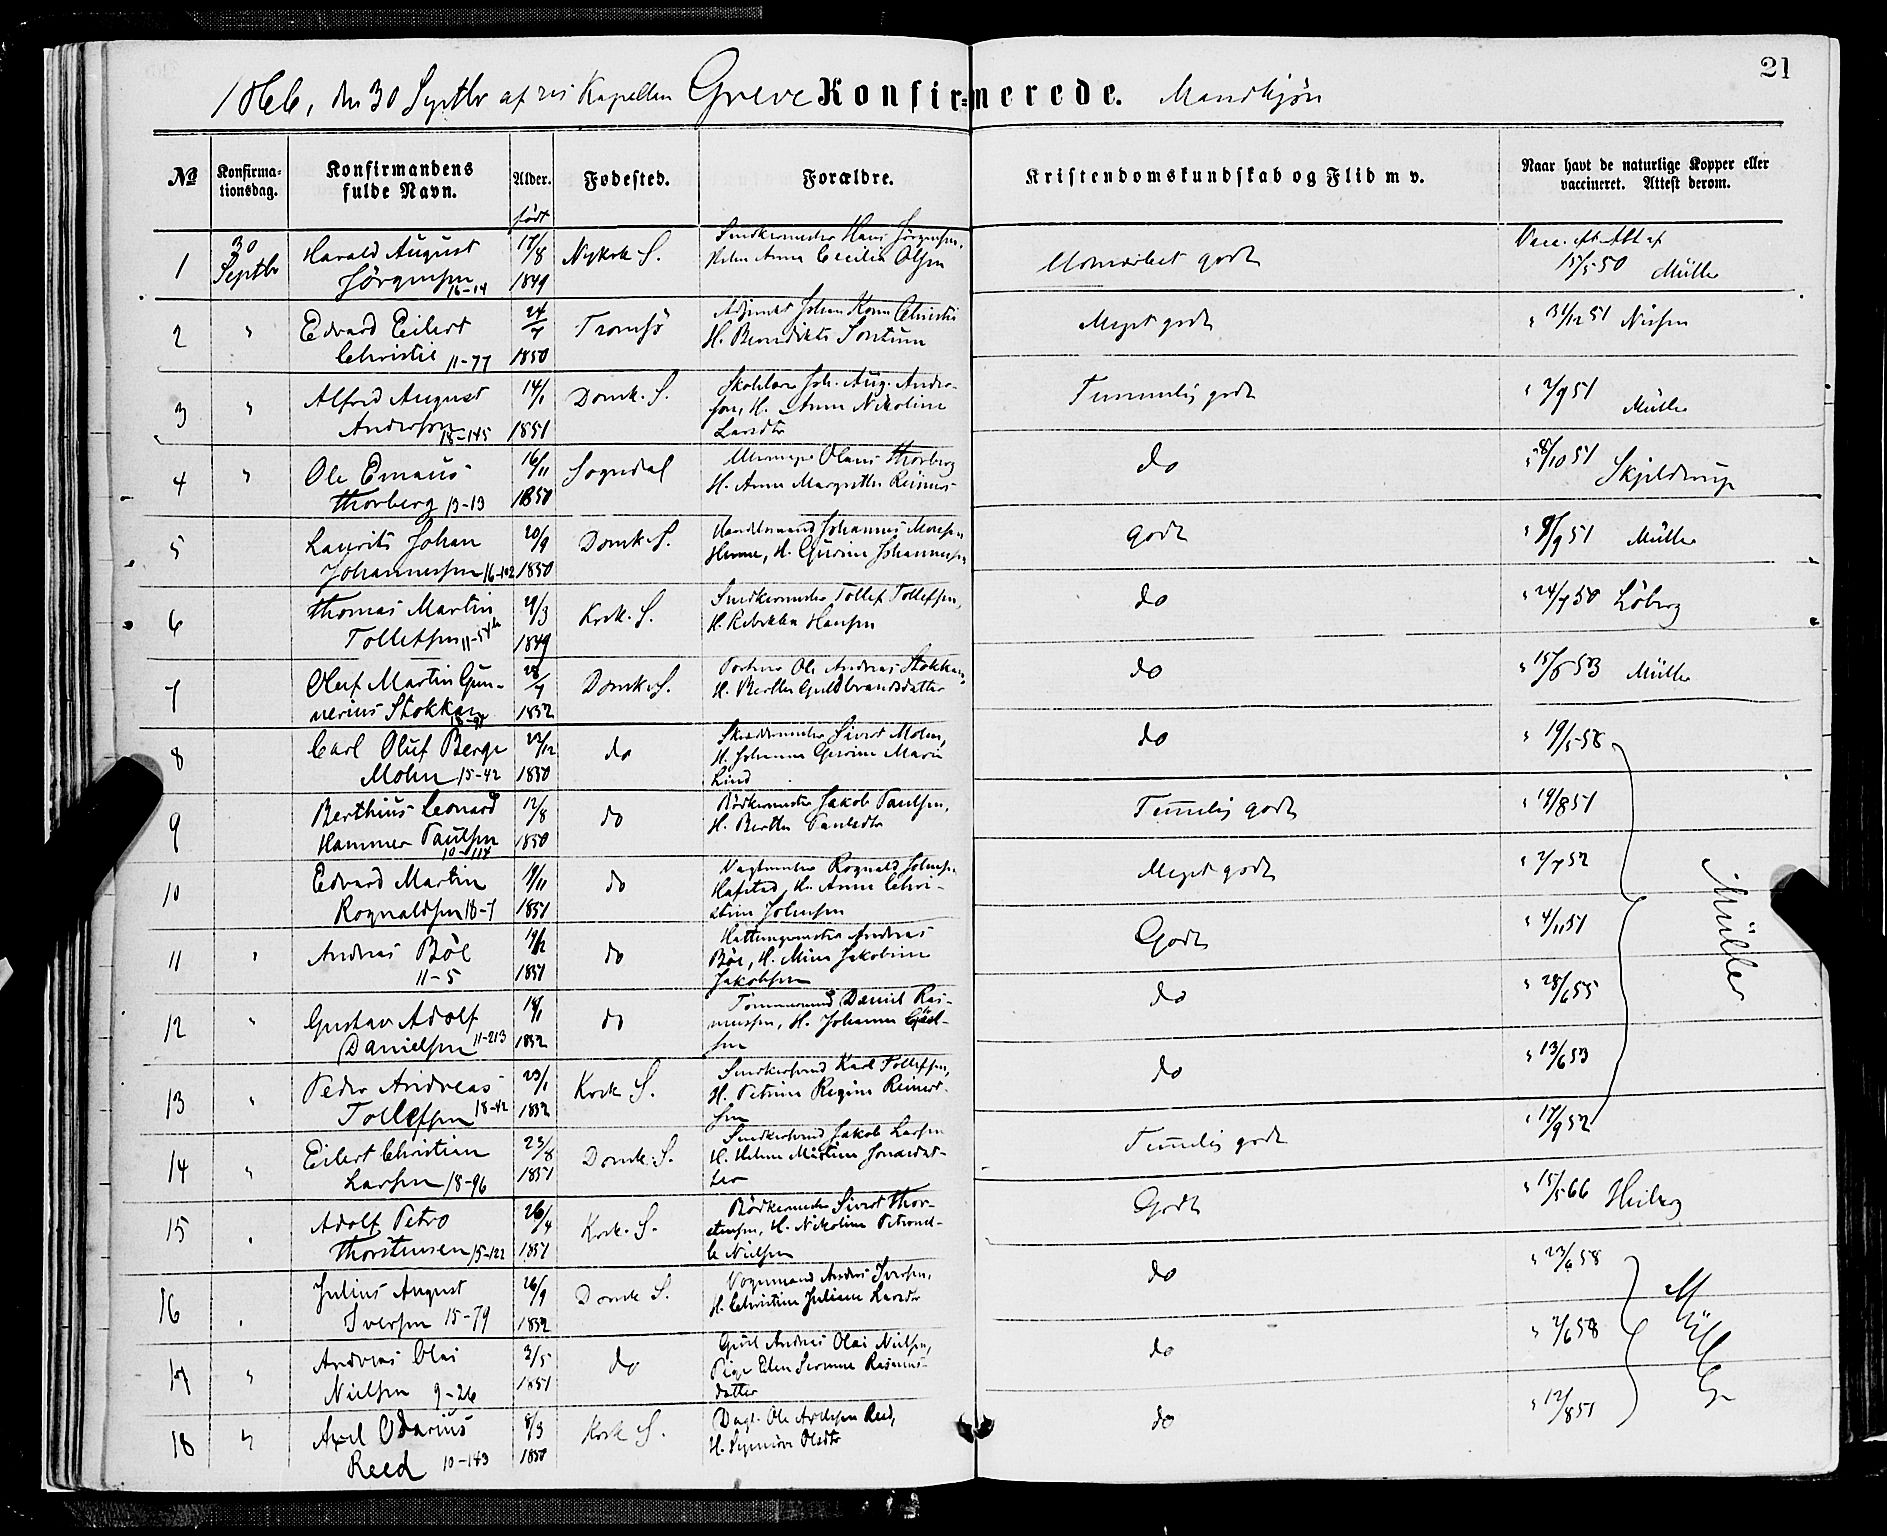 21
1866, den 30 Septbr af res Kapellan Greve Konfirmerede. Mandkjön
№
Konfirma-
tionsdag.
Konfirmandens
fulde Navn.
Alder.
født
Fødested.
Forældre.
Kristendomskundskab og Flid m v.
Naar havt de naturlige Kopper eller
vaccineret. Attest derom.
1
30
Septbr
Harald August
Jörgensen
16-14
17/8
1849
Nykrk S.
Snedkermester Hans Jörgensen,
Helen Anna Cecilia Olsen
Udmærket godt
Vacc. eft. Att af
15/5 50 Müller
2
"
Edvard Eilert
Christie 11-77
24
/7
1850
Tromsö
Adjunkt Johan Koren Christie
H. Benedikte Sontum
Meget godt
" 31/12 51 Nissen
3
"
Alfred August
Andersen
18-145
14/1
1851
Domk. S.
Joh. Aug. Ander-
sen, H. Anne Nikoline
Larsdtr
Temmelig godt
" 2/9 51
Müller
4
"
Ole Emaus
Thorberg 13-13
16/11
1850
Sogndal
Olaus Thorberg
H. Anne Margrethe Reimers
do
" 8/10 51
Skjeldrup
5
Laurits Johan
Johannessen 16-102
20/9
1850
Domk S.
Handelsmand Johannes Monsen
H. Gurine Johannesen
godt
" 9/9 51 Müller
6
Thomas Martin
Tollefsen 11-54b
29/3
1849
Krsk. S.
Snedkermester Tollef Tollefsen,
H. Rebekka Hansen
do
" 24/7 50 Löberg
7
Oluf Martin Gun-
nerius Stokkan
18-91
28
/7
1852
Domk S.
Ole Andreas Stokkan,
H. Berthe Guldbrandsdatter
do
" 15/6 53 Müller
8
Carl Oluf Berge
Mohn 15-42
22/12
1850
do
Skræddermester Sivert Mohn,
H. Johanna Gurine Marie
Lind
do
" 19/5 58
9
Berthius Leonard
Hammer Paulsen
10-114
12/8
1850
do
Bödkermester Jakob Paulsen,
H. Berthe Paulsdtr
Temelig godt
" 19/8 51
10
Edvard Martin
Rognaldsen 18-7
9/11
1851
do
Vagtmester Rognald Johnsen
Hafsted, H. Anne Chri-
stine Johnsen
Meget godt
" 2/7 52
11
"
Andreas Böe
11-5
19/12
1851
do
Andreas
Böe, H. Mina Jakobine
Jakobsen
Godt
" 4/11 51
12
"
Gustav Adolf
Danielsen 11-213
18/1
1852
do
Tömmermand Daniel Ras-
mussen, H. Johanna
sen
do
" 28/6 55
13
"
Peder Andreas
Tollefsen 18-42
23/1
1852
Krsk S.
Snedkersvend Karl Tollefsen,
H. Petrine Regine Reinert-
sen
do
" 13/6 53
14
"
Eilert Christian
Larsen 18-96
23/8
1851
Domk. S.
Snedkersvend Jakob Larsen
H. Helene Martine Jonasdat-
ter
Temelig godt
" 17/9 52
Müller
15
"
Adolf Petro
Thorstensen 15-122
26/4
1851
Krsk. S.
Bödkermester Sivert Thor-
stensen, H. Nikoline Petronel-
le Nielsen
Godt
" 15/5 66 Heiberg
16
"
Julius August
Iversen 15-79
26/9
1852
Domk S.
Vognmand Anders Iversen,
H. Christine Juliane Larsdtr
do
" 23/6 58
17
"
Andreas Olai
Nielsen 9-26
3/5
1851
do
Andreas Olai Nielsen,
Pige Elen Serine Rasmus-
datter
do
" 2/6 58
18
"
Axel Odarius
Reed 10-143
8/3
1850
Krsk S.
Dagl. Ole Axelsen Reed,
H. Olsdtr
do
" 12/8 51
Müller